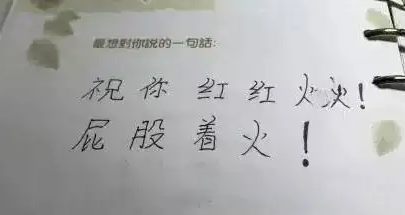 最想對你說的一句話:
祝你红红火火!
屁股着火!